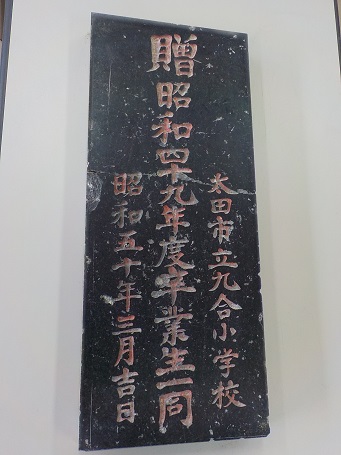 太田市立九合小学校
贈昭和四十九年度卒業生一同
昭和五十年三月吉日